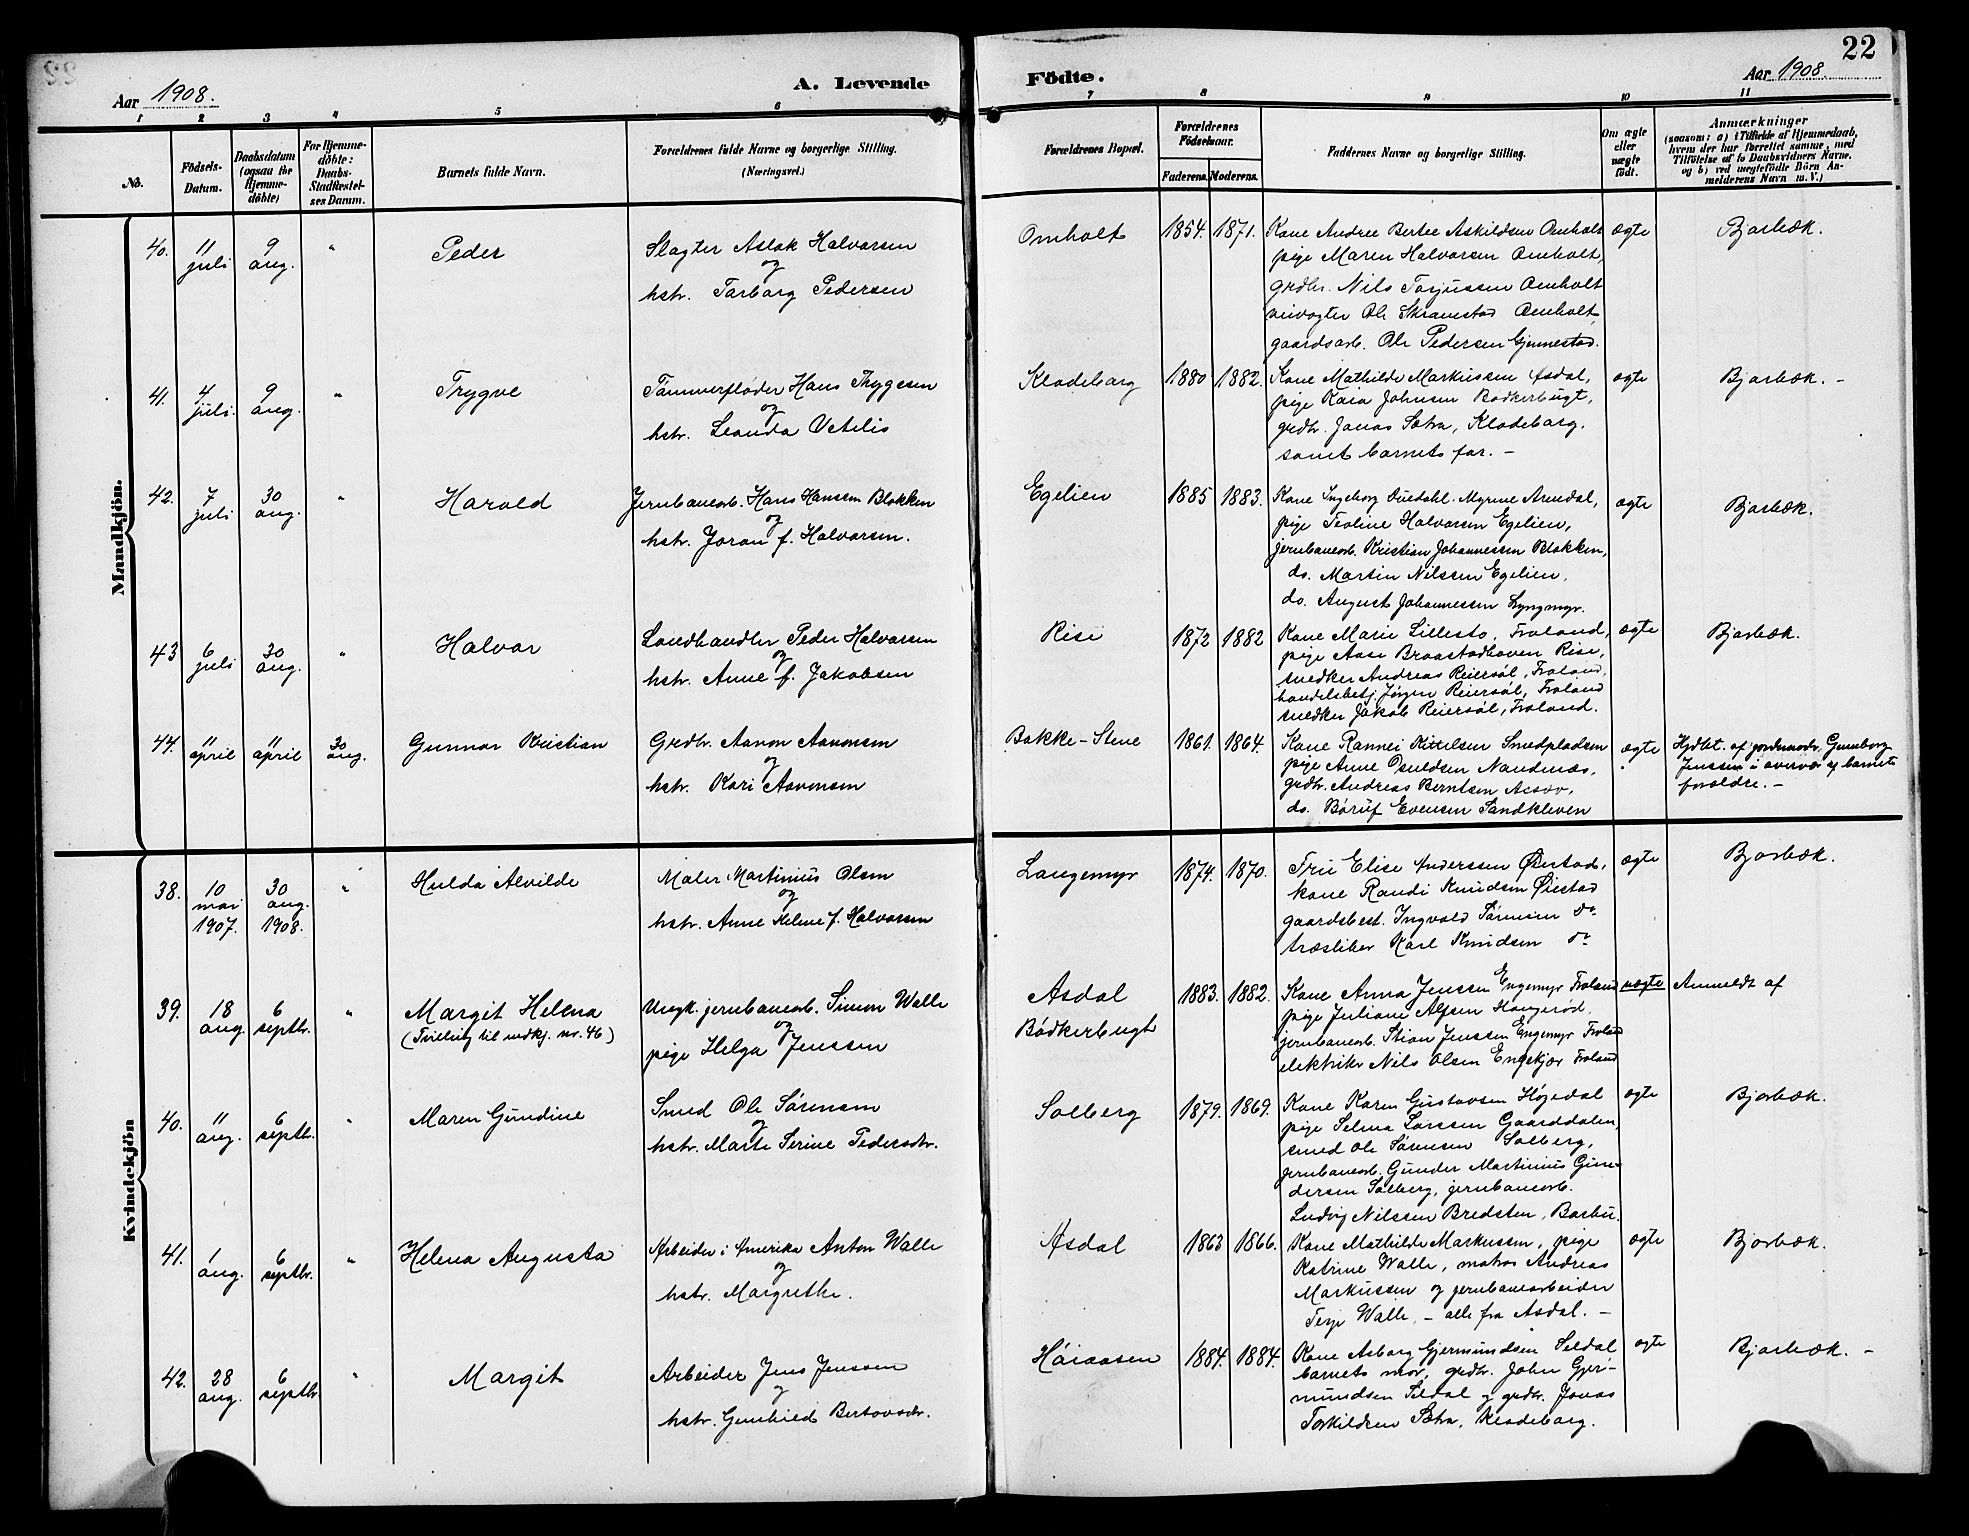 22
Aar 1908.
A. Levende
Födte.
Aar 1908.
1 2 3 4 5 6 7 8 9 10 11
No.
Födsels-
Datum.
Daabsdatum
(ogsaa for
Hjemme-
döbte)
For Hjemme-
döbte:
Daabs-
Stadfestel-
ses Datum.
Barnets fulde Navn.
Forældrenes fulde Navne og borgerlige Stilling.
(Næringsvei.)
Forældrenes Bopæl.
Forældrenes
Födselsaar.
Faderens. Moderens.
Faddernes Navne og borgerlige Stilling.
Om ægte
eller
uægte
födt.
Anmærkninger
(saasom: a) i Tilfælde af Hjemmedaab,
hvem der har forrettet samme, med
Tilföielse af to Daabsvidners Navne.
og b) ved uægtefödte Börn An-
melderens Navn m. V.)
Mandkjön.
40. 11 juli 9 aug. " Peder
Slagter Aslak Halvorsen
og
hstr. Torborg Pedersen
Omholt 1854. 1871.
Kone Andree Bertee Askildsen Omholt
pige Maren Halvorsen Omholt,
grdbr. Nils Torjussen Omholt
veivogter Ole Skranestad Omholt
gaardsarb. Ole Pedersen Gjennestad.
ægte Bjorbæk.
41. 4 juli. 9 aug. " Trygve
Tømmerfløder Hans Thygesen
og
hstr. Leonda Vetelis
Klodeborg 1880 1882.
Kone Mathilde Markussen Asdal,
pige Kara Johnsen Bødkerbugt,
grdbr. Jonas Sætra, Klodeborg.
samt barnets far. –
ægte Bjorbæk. –
42. 7 juli 30 aug. " Harald
Jernbanearb. Hans Hansen Blokken
og
hstr. Joran f. Halvorsen.
Egelien 1885 1883.
Kone Ingeborg Ouedahl. Myrene Arendal,
pige Teoline Halvorsen Egelien,
jernbanearb. Kristian Johannessen Blokken,
do. Martin Nilssen Egelien.
do. August Johannessen Lyngmyr.
ægte Bjorbæk.
43 6 juli 30 aug. " Halvor
Landhandler Peder Halvorsen
og
hstr. Anne f. Jakobsen
Rise 1872 1882
Kone Marie Lillesto, Froland,
pige Aase Braastadhoven Rise,
snedker Andreas Reiersøl, Froland,
handelsbetj. Jørgen Reiersøl, Froland
snedker Jakob Reiersøl, Froland.
ægte Bjorbæk.
44. 11 april 11 april 30 aug. Gunnar Kristian
Grdbr. Aanon Aanonsen
og
hstr. Kari Aanonsen
Bakke-Stene 1861. 1864.
Kone Rannei Kittelsen Smedpladsen
pige Anne Osuldsen Nandenæs,
grdbr. Andreas Berntsen
do. Børuf Evensen Sandkleven
ægte
Hjdbt. af jordmodr. Gunnborg
Jenssen i overvær af barnets
forældre. –
Kvindekjön
38. 10 mai 1907. 30 aug. 1908. " Hulda Alvilde
Maler Martinius Olsen
og
hstr. Anne Helene f. Halvorsen
Langemyr 1874. 1870.
Fru Elise Anderssen Øiestad,
kone Randi Knudsen Øiestad
gaardsbest. Ingvald Sørensen do
træsliber Karl Knudsen do
ægte Bjorbæk.
39. 18 aug. 6 septbr. " Margit Helena
(Tvilling til mdkj. nr. 46)
Ungk. jernbanearb. Simon Walle
og
pige Helga Jenssen
Asdal
Bødkerbugt
1883. 1882.
Kone Anna Jenssen Engemyr Froland
pige Juliane Alfsen Haugerød.
jernbanearb. Stian Jenssen Engemyr Froland
elektriker Nils Olsen Engekjær Froland
uægte Anmeldt af
40. 11 aug. 6 septbr. " Maren Gundine
Smed Ole Sørensen
og
hstr. Marte Serine Pedersdtr.
Solberg 1879. 1869.
Kone Karen Gustavsen Høgedal
pige Selma Larssen Gaarddalen,
smed Ole Sørensen Solberg,
jernbanearb. Gunder Martinius Gun-
dersen Solberg, jernbanearb.
Ludvig Nilssen Bredsten, Barbu.
ægte Bjorbæk.
41. 1 aug. 6 septbr. " Helena Augusta
Arbeider i Amerika Anton Walle
og
hstr. Margrethe.
Asdal 1863 1866.
Kone Mathilde Markussen, pige
Katrine Walle, matros Andreas
Markussen og jernbanearbeider
Terje Walle. – alle fra Asdal. –
ægte Bjorbæk.
42. 28 aug. 6 septbr. " Margit
Arbeider Jens Jenssen
og
hstr. Gunhild Bertovsdtr.
Høiaasen 1884. 1884.
Kone Asborg Gjermundsen Seldal
barnets mor, grdbr. John Gjer-
mundsen Seldal og grdbr. Jonas
Torkildsen Sætra, Klodeborg.
ægte Bjorbæk. –